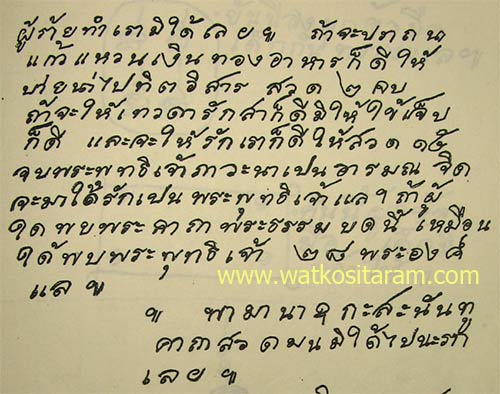 ผู้ร้ายทำเรามิได้เลย ฯ ถ้าจะปรถนา
แก้วแหวนเงินทองอาหารก็ดี ให้
บ่ายน่าไปทิศอิสาร สวด ๒ คบ
ถ้าจะให้เทวดารักสาก็ดีมิให้ไข้เจ็บ
ก็ดี และจะให้รักเราก็ดีให้สวด ๑๕
จบพระพุทธิเจ้าภาวะนาเปนอารมณ จิต
จะมาได้รักเปน พระพุทธิเจ้าแล ฯ ถ้าผู้
ใดพบพระคาถาพระธรรม บดนี้ เหมือน
ได้พบพระพุทธิเจ้า ๒๘ พระองค์
แล ฯ
www.watkositaram.com
ฯ พามานาอุกะสะนันทุ
คาถาสวดมนมิได้ไปนะรก
เลย ฯ